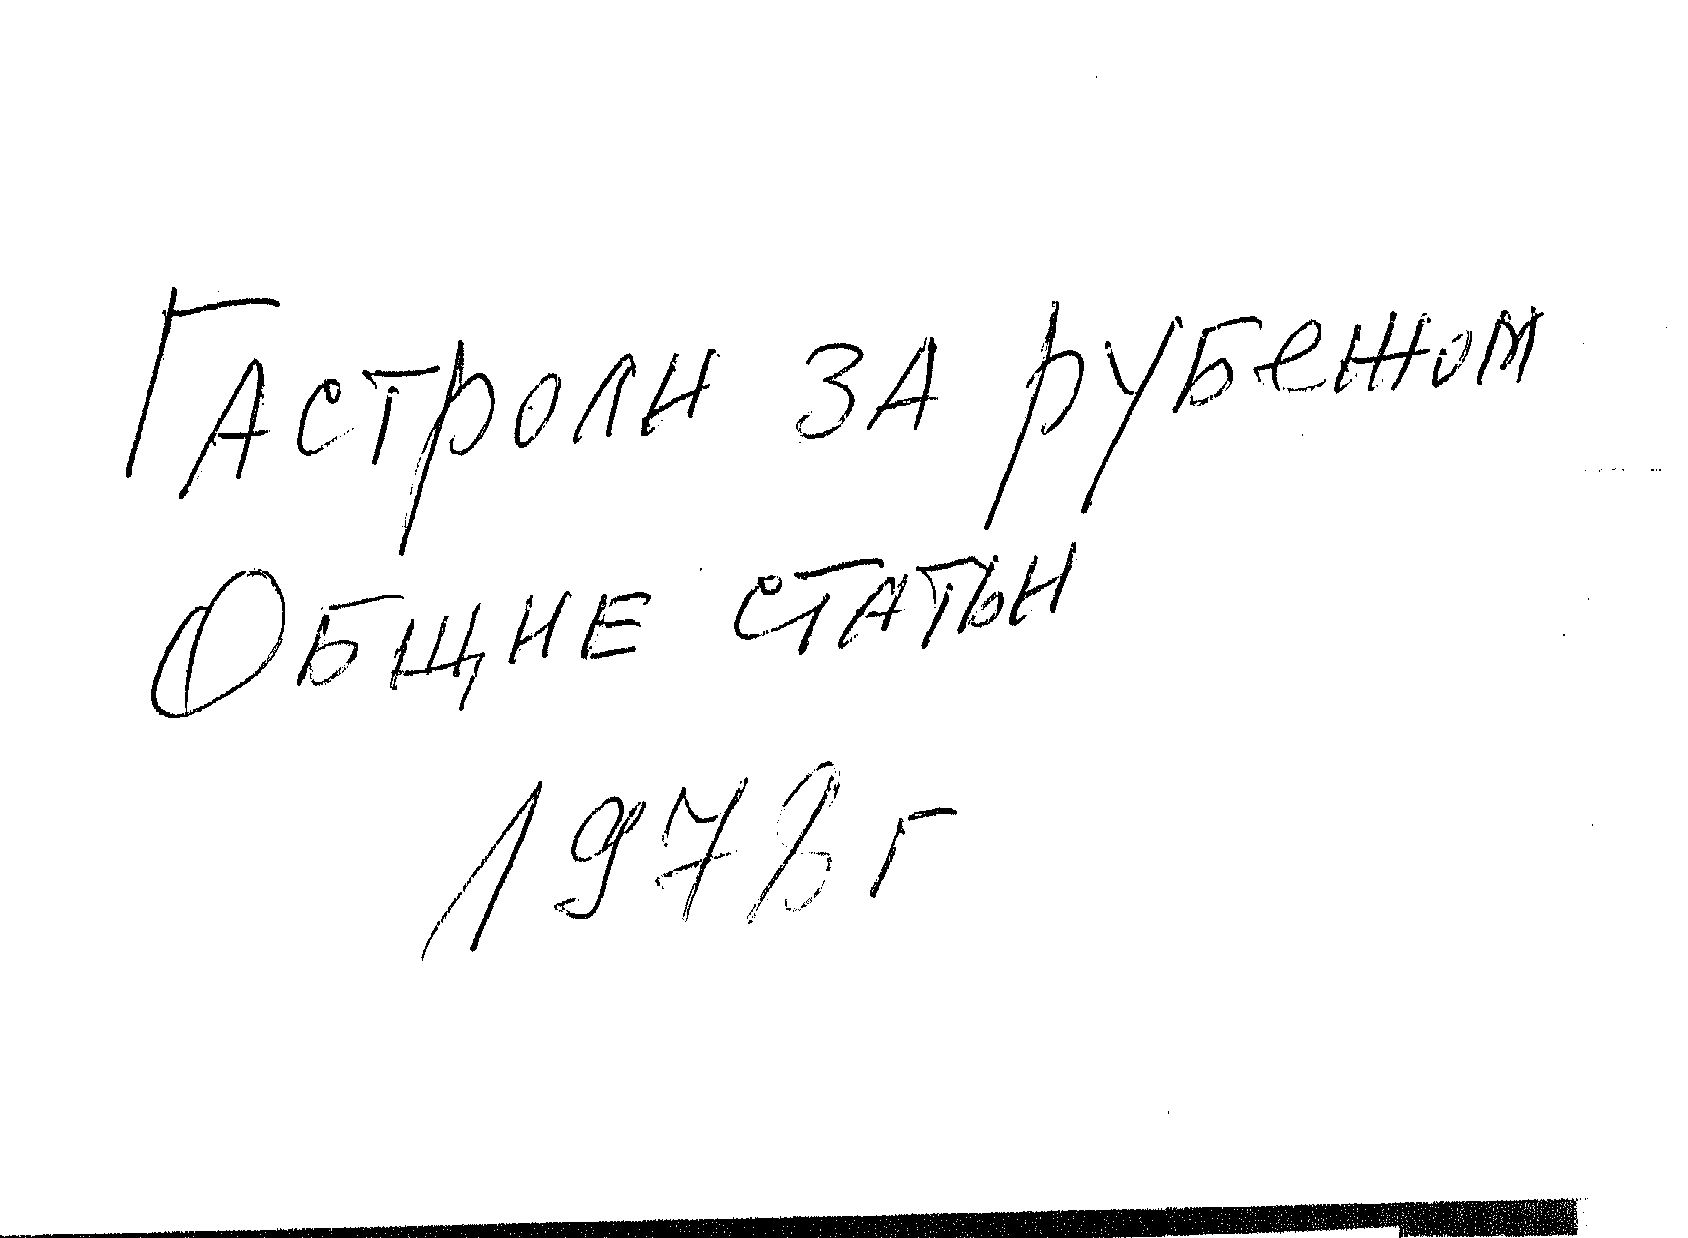 Гастроли за рубежом
Общие статьи
1978 г